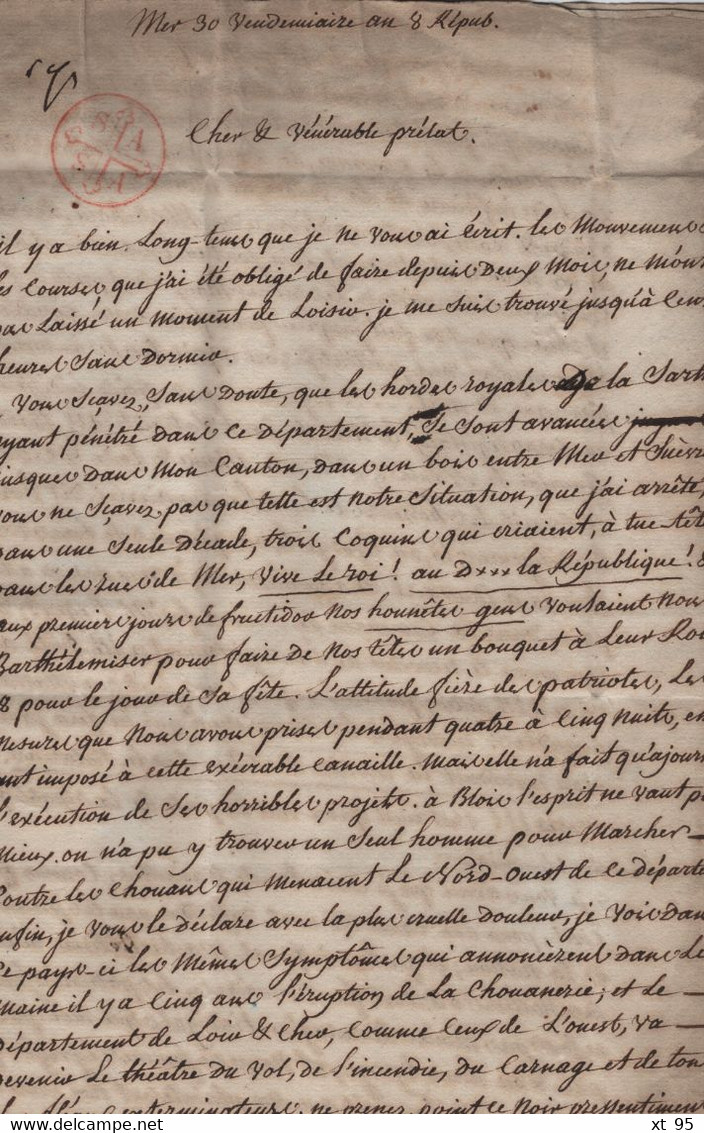 Mer 30 Vendemiaire an 8 Répub.
Cher & Vénérable prélat.
il y a bien Long-tems que je ne vous ai Écrit. les Mouvemens
les Courses que j'ai été obligé de faire depuis Deux Mois, ne m'ont
pas Laissé un Moment de Loisir. je me suis trouvé jusqu'à Cent
heures Sans Dormir.
Vous Sçavez, Sans Doute, que les hordes royales de la Sarth
ayant pénétré dans Ce Département, Se Sont avancées
jusques Dans Mon Canton, dans un bois entre Mer et Suèvr
vous ne Sçavez pas que telle est Notre Situation, que j'ai arrêté,
dans une Seule Décade, trois Coquins qui criaient, à tue tête
dans les rues de Mer, Vive Le roi! au D*** la République! &
aux premiers jours de fructidor Nos honnêtes gens voulaient Nous
Barthélemiser pour faire de Nos têtes un bouquet à Leur Roi
& pour le jour de Sa fête. L'attitude fière des patriotes, Les
Mesures que Nous avons prises pendant quatre à Cinq Nuits, en
ont imposé à cette exécrable Canaille. Mais elle n'a fait qu'ajourn
l'exécution de Ses horribles projets. à Blois l'esprit ne vaut p
Mieux. on n'a pu y trouver un Seul homme pour Marcher
Contre les Chouans qui Menacent Le Nord-Ouest de Ce départe
enfin, je vous le déclare avec la plus cruelle Douleur, je Vois Dans
Ce pays-ci les Mêmes Symptômes qui annoncèrent Dans Le
Maine il y a Cinq ans l'éruption de La Chouanerie; et Le
Département de Loir & Cher, Comme Ceux de L'ouest, va
devenir Le théâtre du Vol, de l'incendie, du Carnage et de tou
exterminateurs. ne prenez point ce Noir pressentiment
xt 95